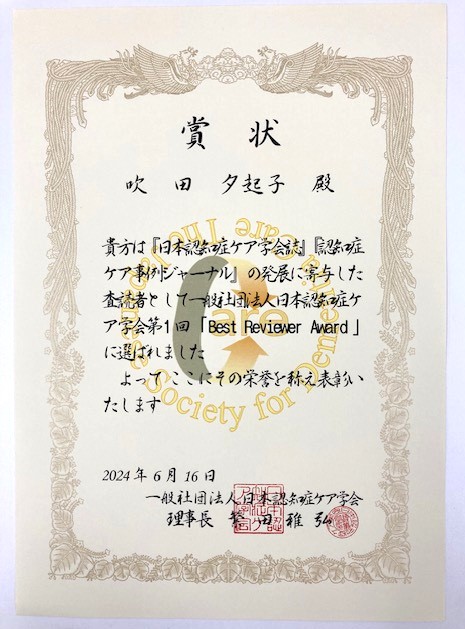 賞状
吹田夕起子 殿
貴方は『日本認知症ケア学会誌』『認知症
ケア事例ジャーナル』の発展に寄与した
査読者として一般社団法人日本認知症ケ
ア学会第1回「Best Reviewer Award」
に選ばれました
よってここにその栄誉を称え表彰い
たします
2024年6月16日
一般社団法人日本認知症ケア学会
理事長 繁田雅弘
Care
Society for Dementia Care The Japanese